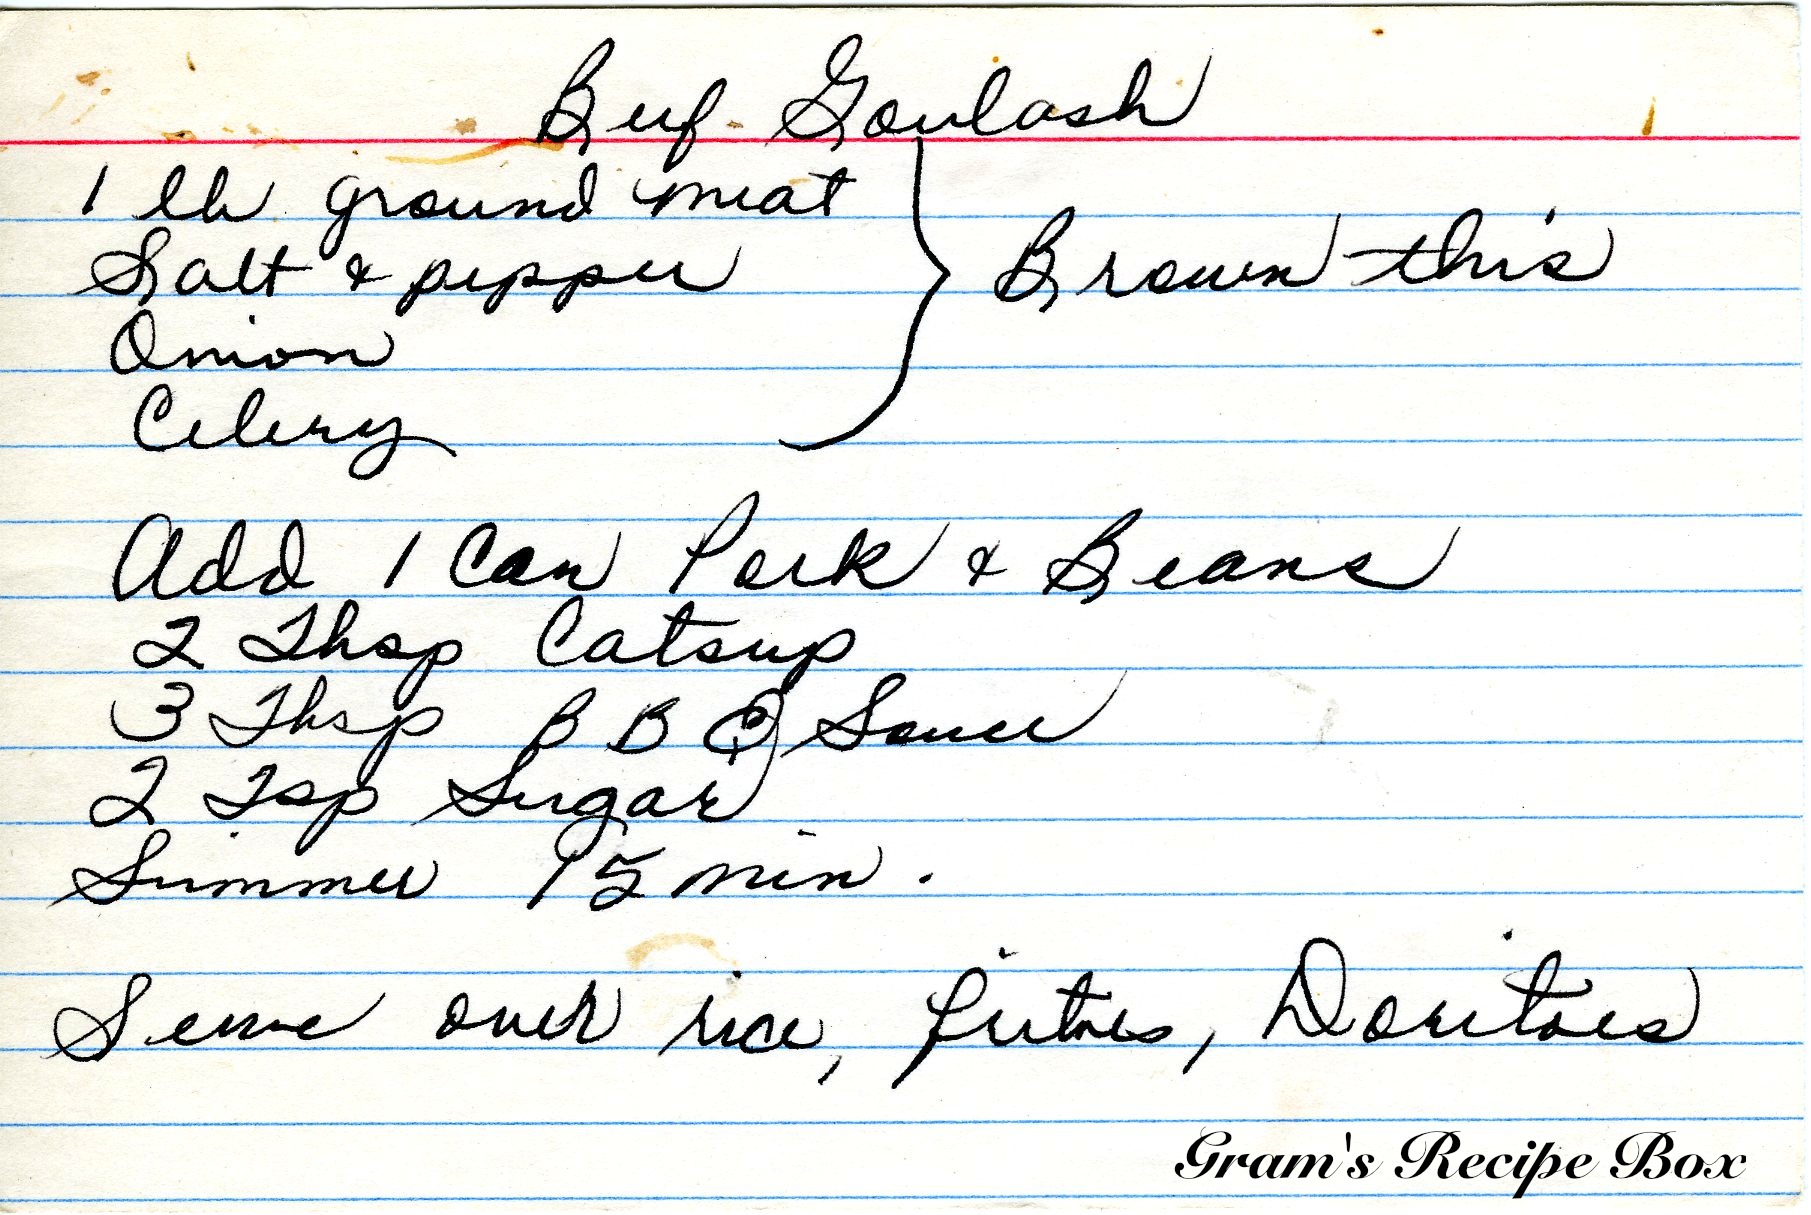 Beef Goulash
1 lb ground meat
Salt & pepper
Onion
Celery
Brown this
Add 1 Can Pork & Beans
2 Tbsp Catsup
3 Tbsp BBQ Sauce
2 Tsp Sugar
Simmer 15 min.
Serve over rice, fritoes, Doritoes
Gram's Recipe Box